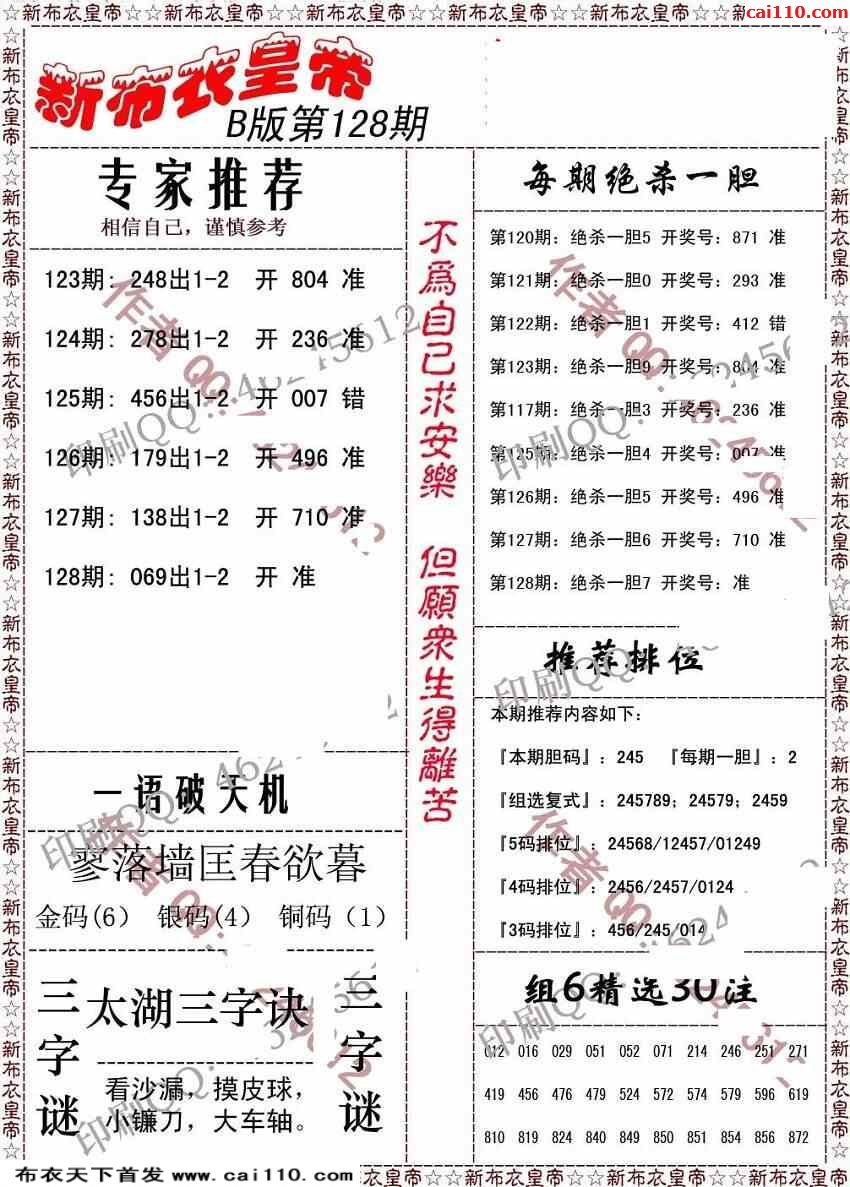 ☆新布衣皇帝☆☆新布衣皇帝☆☆新布衣皇帝☆☆新布衣皇帝☆☆新布衣皇帝☆☆新
cai110.com
新布衣皇帝
B版第128期
专家推荐
相信自己，谨慎参考
123期: 248出1-2 开 804 准
124期: 278出1-2 开 236 准
125期: 456出1-2 开 007 错
126期: 179出1-2 开 496 准
127期: 138出1-2 开 710 准
128期: 069出1-2 开 准
一语破天机
寥落墙匡春欲暮
金码(6) 银码(4) 铜码（1）
三字谜
太湖三字诀
看沙漏，摸皮球，
小镰刀，大车轴。
三字谜
不爲自己求安樂 但願衆生得離苦
每期绝杀一胆
第120期: 绝杀一胆5 开奖号: 871 准
第121期: 绝杀一胆0 开奖号: 293 准
第122期: 绝杀一胆1 开奖号: 412 错
第123期: 绝杀一胆9 开奖号: 804 准
第117期: 绝杀一胆3 开奖号: 236 准
第125期: 绝杀一胆4 开奖号: 007 准
第126期: 绝杀一胆5 开奖号: 496 准
第127期: 绝杀一胆6 开奖号: 710 准
第128期: 绝杀一胆7 开奖号: 准
推荐排位
本期推荐内容如下:
『本期胆码』: 245 『每期一胆』: 2
『组选复式』: 245789; 24579; 2459
『5码排位』: 24568/12457/01249
『4码排位』: 2456/2457/0124
『3码排位』: 456/245/014
组6精选30注
012 016 029 051 052 071 214 246 251 271
419 456 476 479 524 572 574 579 596 619
810 819 824 840 849 850 851 854 856 872
布衣天下首发 www.cai110.com
衣皇帝☆☆新布衣皇帝☆☆新布衣皇帝☆☆新布衣皇帝☆